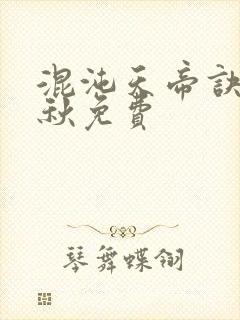 混沌天帝訣
秋免費
琴舞蝶翎